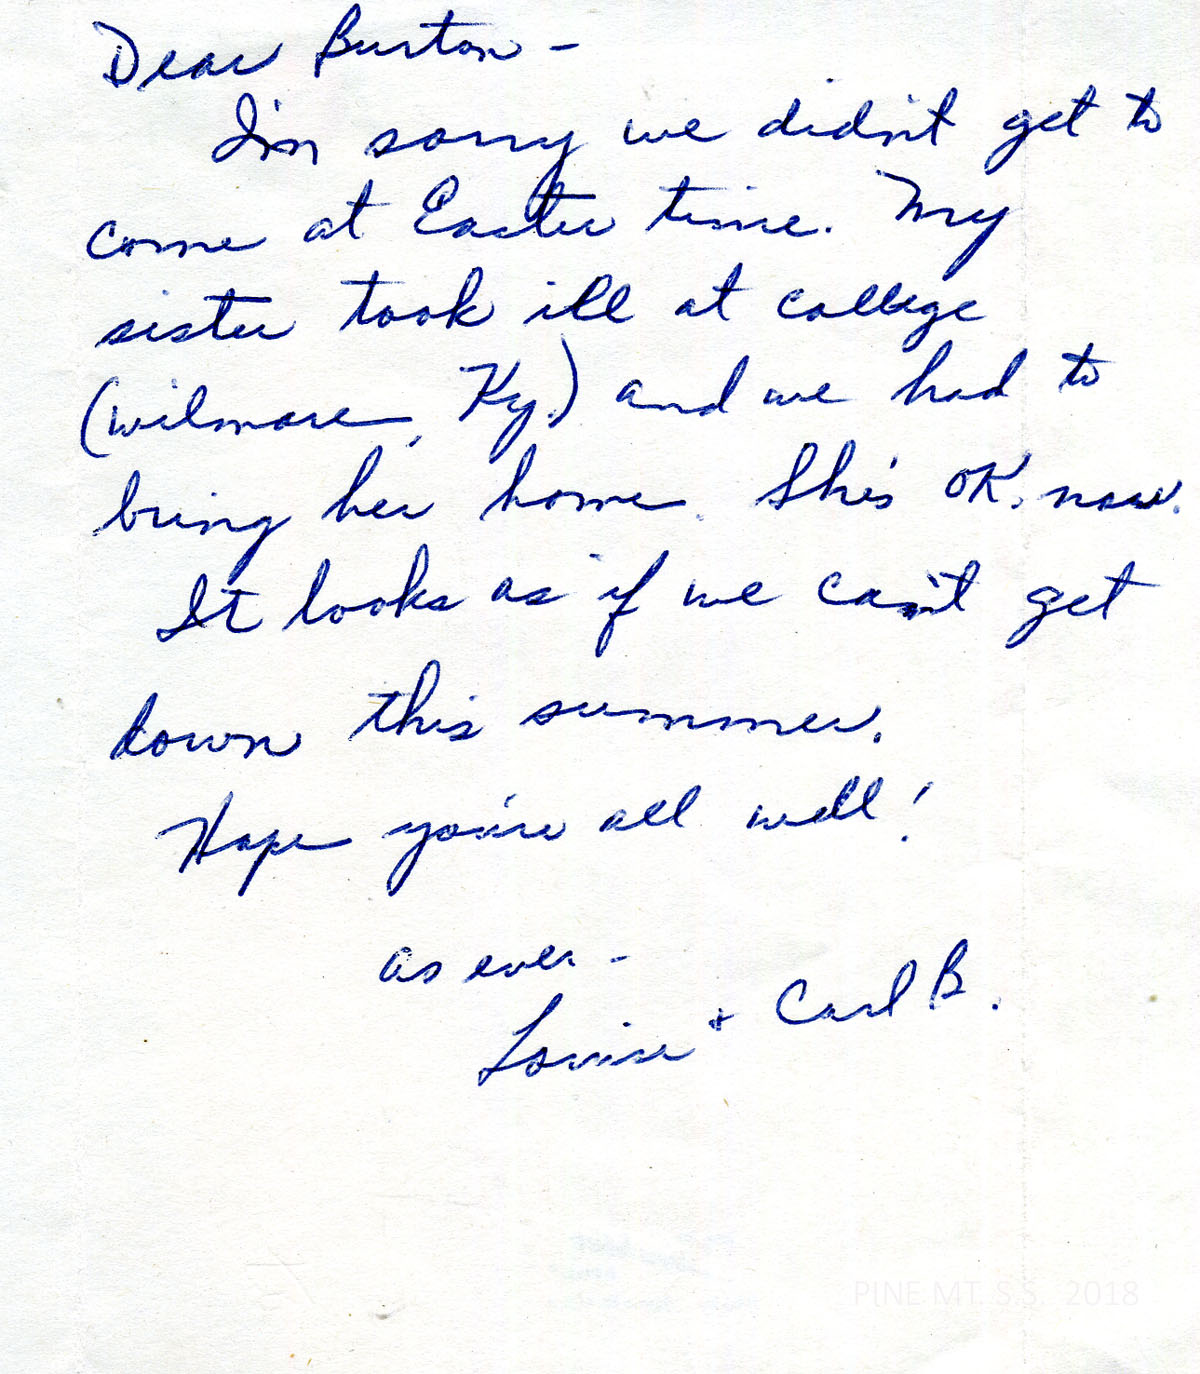 Dear Burton -
I'm sorry we didn't get to
come at Easter time. My
sister took ill at college
(Wilmore, Ky.) and we had to
bring her home. She's OK. now.
It looks as if we can't get
down this summer.
Hope you're all well!
as ever -
Louise + Carl B.
PINE MT. S.S. 2018